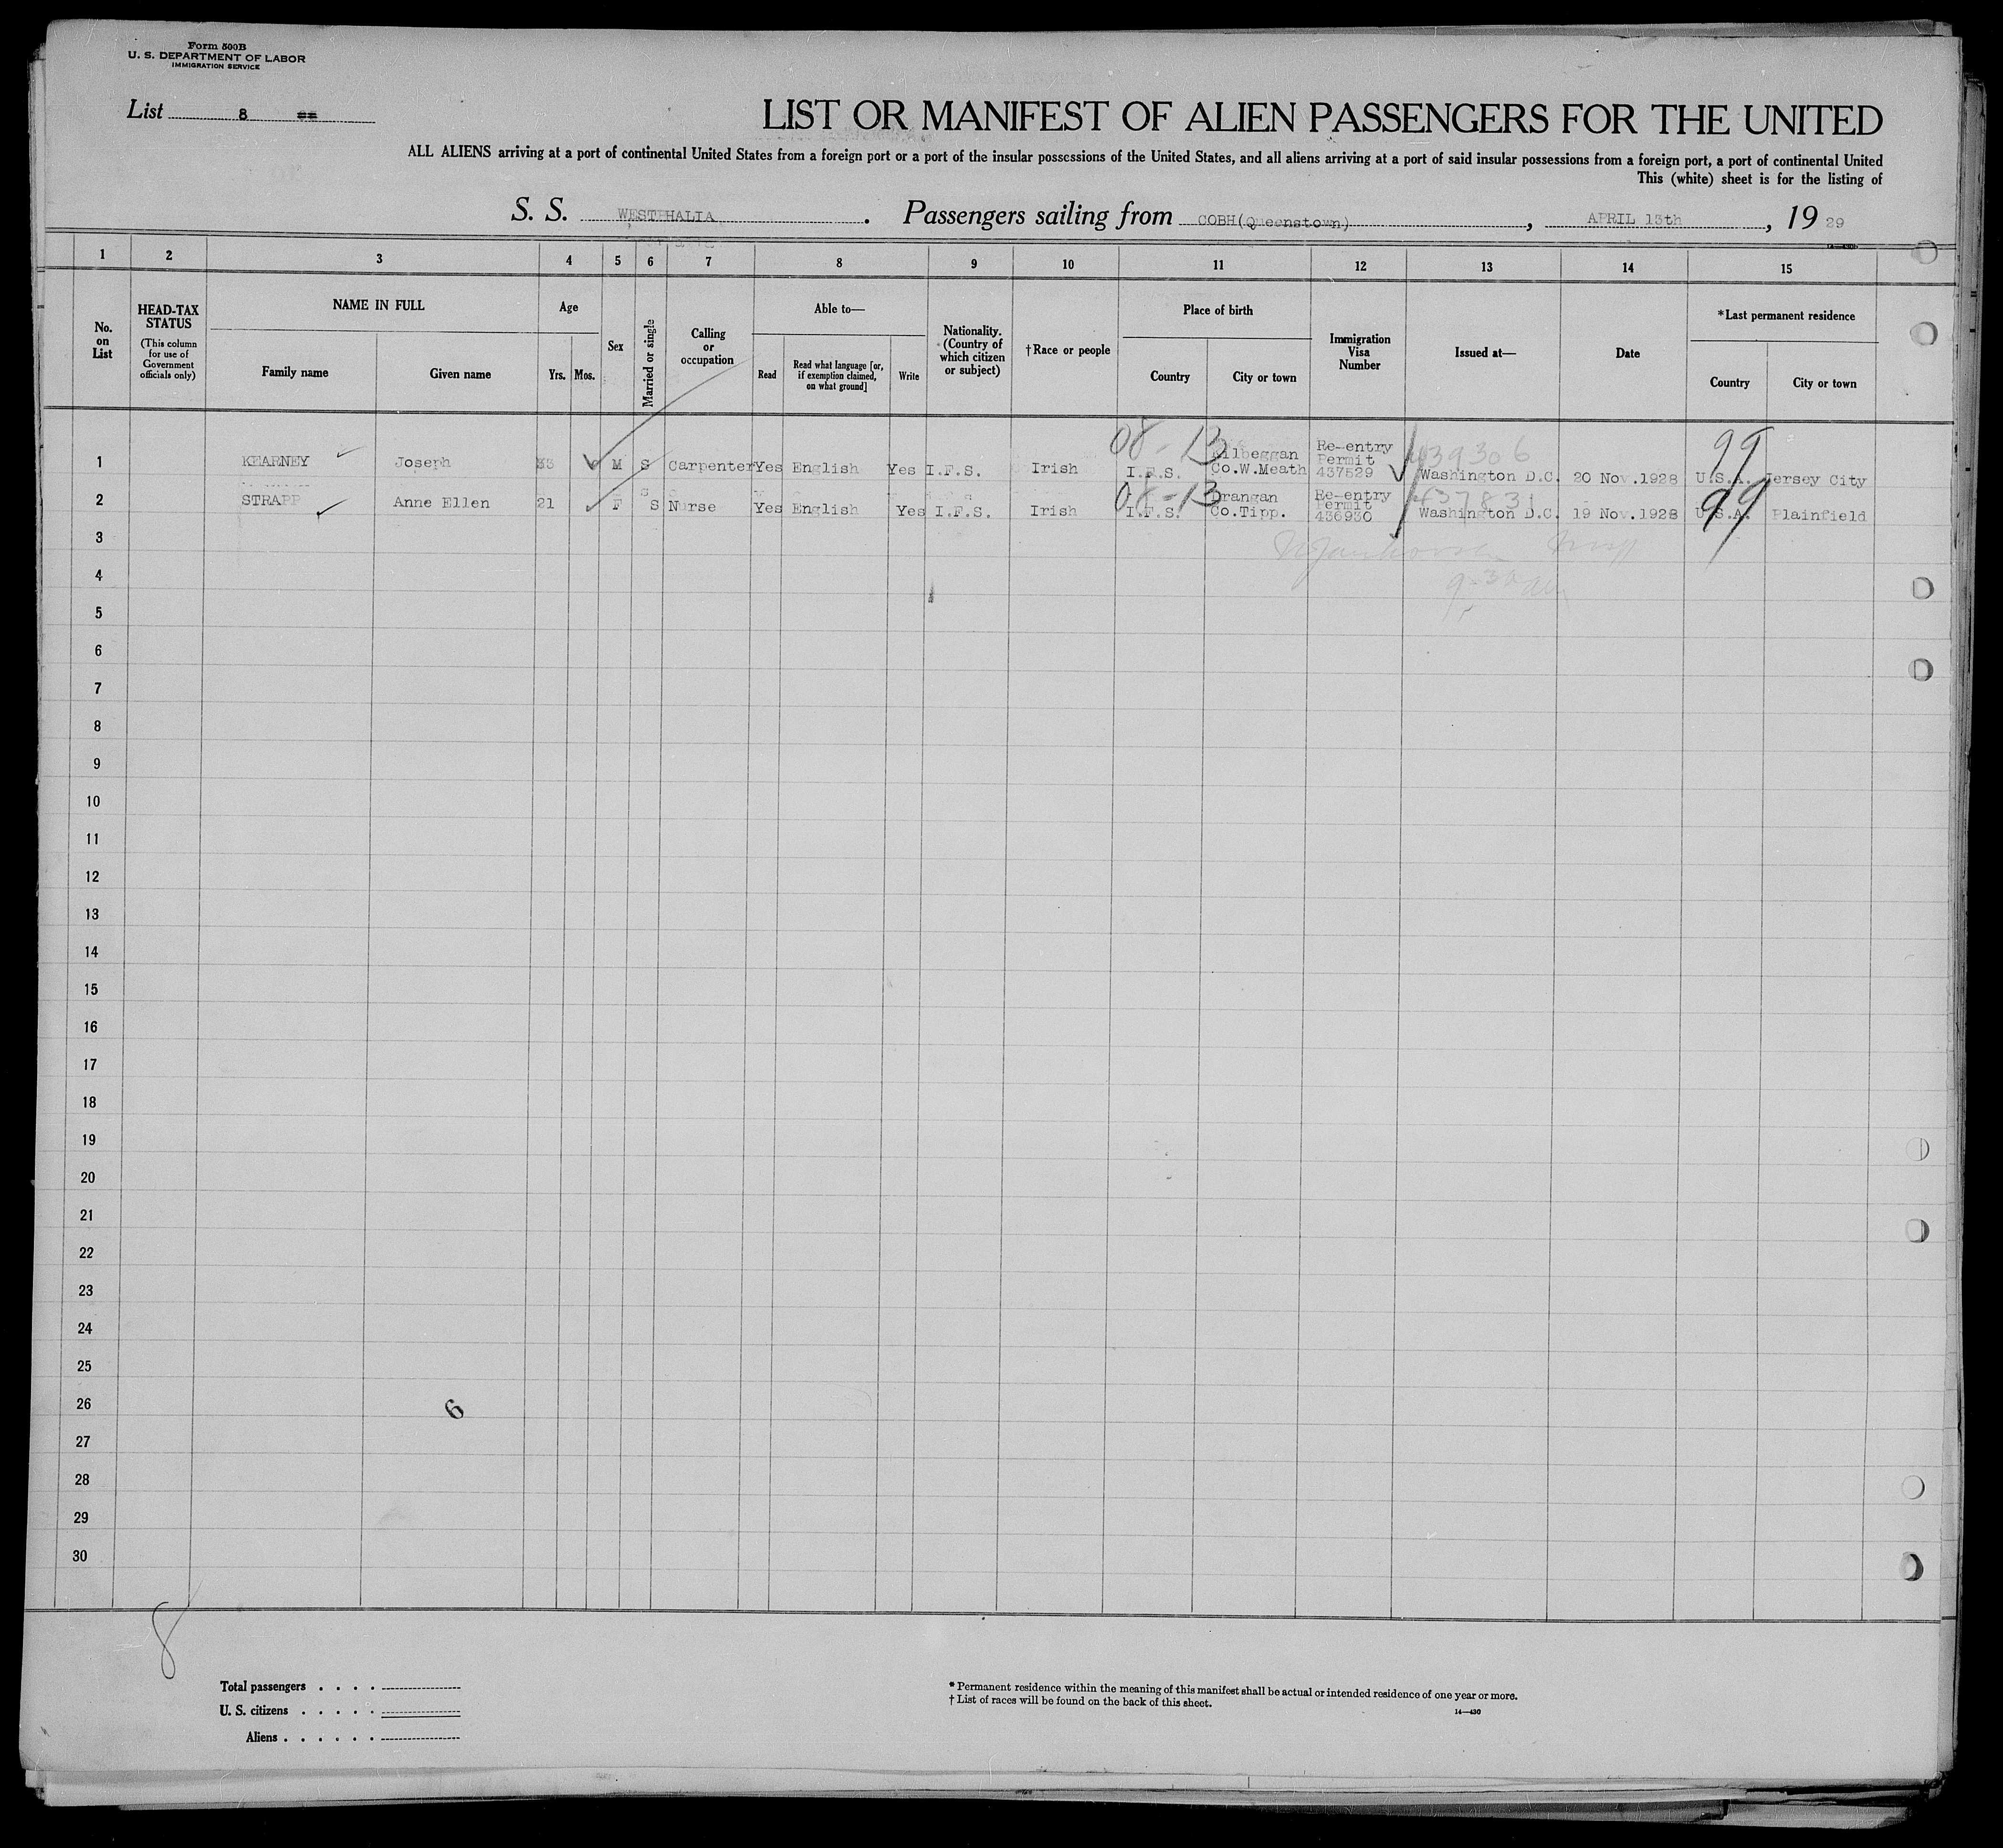 Form 500B
U. S. DEPARTMENT OF LABOR
IMMIGRATION SERVICE
List 8
LIST OR MANIFEST OF ALIEN PASSENGERS FOR THE UNITED
ALL ALIENS arriving at a port of continental United States from a foreign port or a port of the insular possessions of the United States, and all aliens arriving at a port of said insular possessions from a foreign port, a port of continental United
This (white) sheet is for the listing of
S. S. WESTPHALIA. Passengers sailing from COBH(Queenstown), APRIL 13th, 1929
1 2 3 4 5 6 7 8 9 10 11 12 13 14 15
No. on List
HEAD-TAX STATUS
(This column for use of Government officials only)
NAME IN FULL
Family name
Given name
Age
Yrs. Mos.
Sex
Married or single
Calling or occupation
Able to—
Read
Read what language [or, if exemption claimed, on what ground]
Write
Nationality. (Country of which citizen or subject)
†Race or people
Place of birth
Country
City or town
Immigration Visa Number
Issued at—
Date
*Last permanent residence
Country
City or town
08-13 99
439306
1 KEARNEY Joseph M S Carpenter Yes English Yes I.F.S. Irish I.F.S. Kilbeggan Co.W.Meath Re-entry Permit 437529 Washington D.C. 20 Nov.1928 U.S.A. Jersey City
08-13 99
437831
2 STRAPP Anne Ellen 21 F S Nurse Yes English Yes I.F.S. Irish I.F.S. Drangan Co.Tipp. Re-entry Permit 436930 Washington D.C. 19 Nov.1928 U.S.A. Plainfield
3
4
9-30 am
5
6
7
8
9
10
11
12
13
14
15
16
17
18
19
20
21
22
23
24
25
26
6
27
28
29
30
8
Total passengers . . . .
U. S. citizens . . . . .
Aliens . . . . . .
* Permanent residence within the meaning of this manifest shall be actual or intended residence of one year or more.
† List of races will be found on the back of this sheet.
14—430